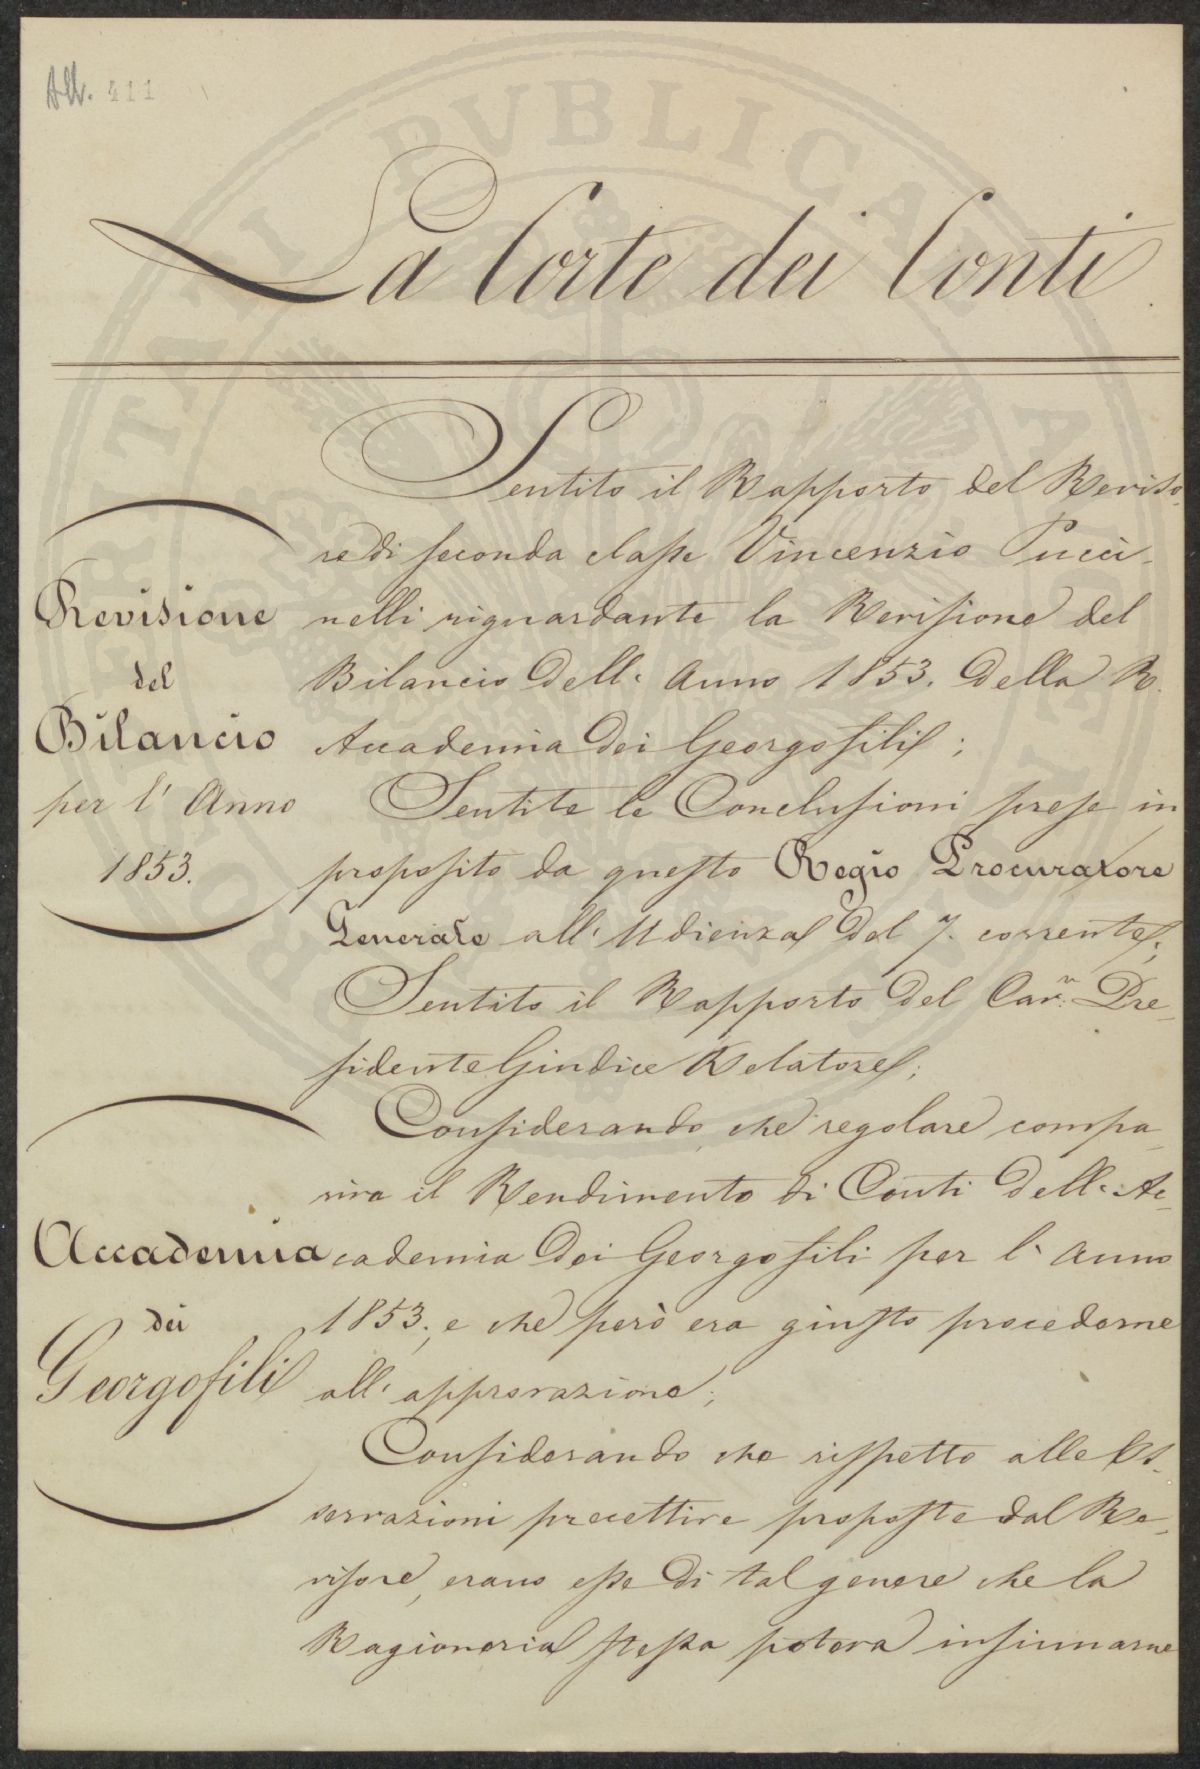 All. 411
La Corte dei Conti
Revisione
del
Bilancio
per l' Anno
1853.
Accademia
dei
Georgofili
Sentito il Rapporto del Reviso-
re di seconda classe Vincenzio Pucci-
nelli riguardante la Revisione del
Bilancio dell' Anno 1853. della R.
Accademia dei Georgofili;
Sentite le Conclusioni prese in
proposito da questo Regio Procuratore
Generale all' Udienza del 7. corrente;
Sentito il Rapporto del Cav.r Pre-
sidente Giudice Relatore;
Considerando che regolare compa-
riva il Rendimento di Conti dell' Ac-
cademia dei Georgofili per l' Anno
1853., e che però era giusto procederne
all' approvazione;
Considerando che rispetto alle Os-
servazioni precettive proposte dal Re-
visore, erano esse di tal genere che la
Ragioneria stessa poteva insinuarne
PUBLICAE